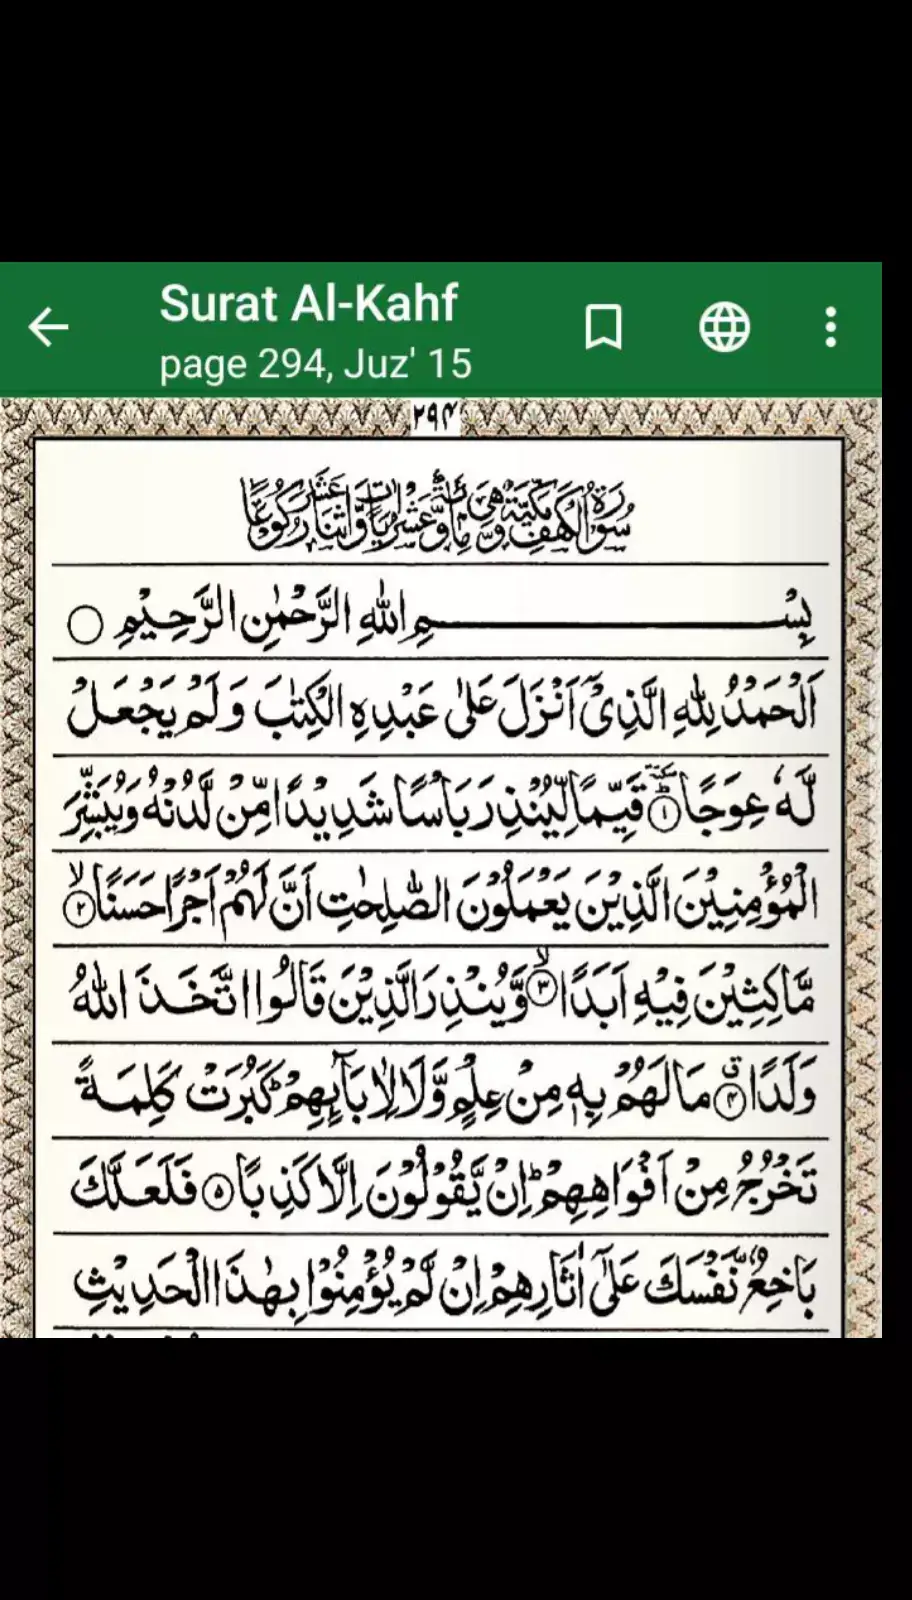 Surat Al-Kahf
page 294, Juz' 15
۲۹۴
سُوْرَةُ الْكَهْفِ مَكِّيَّةٌ وَّهِيَ مِائَةٌ وَّعَشْرُ اٰيَاتٍ وَّاثْنَا عَشَرَ رُكُوْعًا
بِسْمِ اللّٰهِ الرَّحْمٰنِ الرَّحِيْمِ ○
اَلْحَمْدُ لِلّٰهِ الَّذِىْٓ اَنْزَلَ عَلٰى عَبْدِهِ الْكِتٰبَ وَلَمْ يَجْعَلْ
لَّهٗ عِوَجًا ؕ۱ قَيِّمًا لِّيُنْذِرَ بَاْسًا شَدِيْدًا مِّنْ لَّدُنْهُ وَيُبَشِّرَ
الْمُؤْمِنِيْنَ الَّذِيْنَ يَعْمَلُوْنَ الصّٰلِحٰتِ اَنَّ لَهُمْ اَجْرًا حَسَنًا ۙ۲
مَّاكِثِيْنَ فِيْهِ اَبَدًا ۙ۳ وَّيُنْذِرَ الَّذِيْنَ قَالُوا اتَّخَذَ اللّٰهُ
وَلَدًا ۴ق مَا لَهُمْ بِهٖ مِنْ عِلْمٍ وَّلَا لِاٰبَآئِهِمْ ؕ كَبُرَتْ كَلِمَةً
تَخْرُجُ مِنْ اَفْوَاهِهِمْ ؕ اِنْ يَّقُوْلُوْنَ اِلَّا كَذِبًا ۵ فَلَعَلَّكَ
بَاخِعٌ نَّفْسَكَ عَلٰٓى اٰثَارِهِمْ اِنْ لَّمْ يُؤْمِنُوْا بِهٰذَا الْحَدِيْثِ